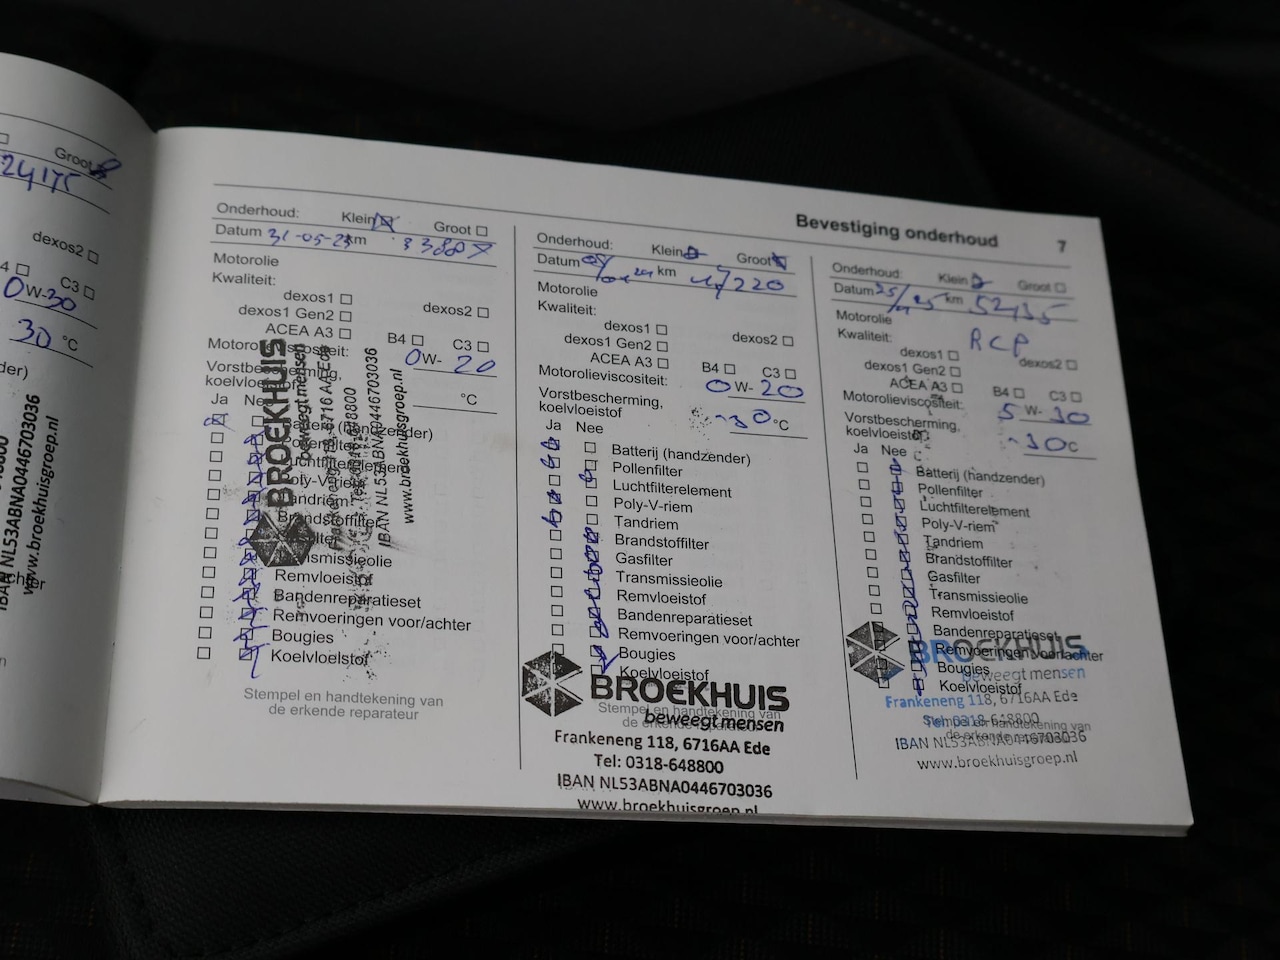 Groot
24175
dexos2
C3
0W-30
30 °C
IBAN NL53ABNA0446703036
www.broekhuisgroep.nl
Bevestiging onderhoud 7
Onderhoud: Klein Groot
Datum 31-05-23 km 33887
Motorolie
Kwaliteit:
dexos1 dexos2
dexos1 Gen2
ACEA A3 B4 C3
Motorolieviscositeit: 0W-20
Vorstbescherming,
koelvloeistof °C
Ja Nee
Batterij (handzender)
Pollenfilter
Luchtfilterelement
Poly-V-riem
Tandriem
Brandstoffilter
Gasfilter
Transmissieolie
Remvloeistof
Bandenreparatieset
Remvoeringen voor/achter
Bougies
Koelvloeistof
Stempel en handtekening van
de erkende reparateur
BROEKHUIS
beweegt mensen
Frankeneng 118, 6716 AA Ede
Tel: 0318-648800
IBAN NL53ABNA0446703036
www.broekhuisgroep.nl
Onderhoud: Klein Groot
Datum km 47220
Motorolie
Kwaliteit:
dexos1 dexos2
dexos1 Gen2
ACEA A3 B4 C3
Motorolieviscositeit: 0W-20
Vorstbescherming,
koelvloeistof -30°C
Ja Nee
Batterij (handzender)
Pollenfilter
Luchtfilterelement
Poly-V-riem
Tandriem
Brandstoffilter
Gasfilter
Transmissieolie
Remvloeistof
Bandenreparatieset
Remvoeringen voor/achter
Bougies
Koelvloeistof
Stempel en handtekening van
de erkende reparateur
BROEKHUIS
beweegt mensen
Frankeneng 118, 6716AA Ede
Tel: 0318-648800
IBAN NL53ABNA0446703036
www.broekhuisgroep.nl
Onderhoud: Klein Groot
Datum km 52435
Motorolie
Kwaliteit: RCP
dexos1 dexos2
dexos1 Gen2
ACEA A3 B4 C3
Motorolieviscositeit: 5W-30
Vorstbescherming,
koelvloeistof -30C
Ja Nee
Batterij (handzender)
Pollenfilter
Luchtfilterelement
Poly-V-riem
Tandriem
Brandstoffilter
Gasfilter
Transmissieolie
Remvloeistof
Bandenreparatieset
Remvoeringen voor/achter
Bougies
Koelvloeistof
Stempel en handtekening van
de erkende reparateur
BROEKHUIS
beweegt mensen
Frankeneng 118, 6716AA Ede
Tel: 0318-648800
IBAN NL53ABNA0446703036
www.broekhuisgroep.nl